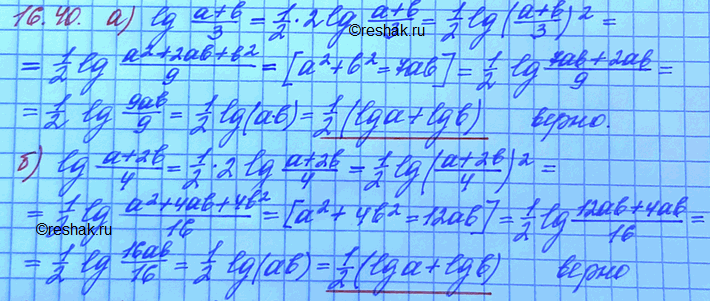 16.40. а) lg (a+b)/3 = 1/2 · 2 lg (a+b)/3 = 1/2 lg ((a+b)/3)² =
= 1/2 lg (a²+2ab+b²)/9 = [a²+b²=7ab] = 1/2 lg (7ab+2ab)/9 =
= 1/2 lg 9ab/9 = 1/2 lg(ab) = 1/2 (lg a + lg b) верно.
б) lg (a+2b)/4 = 1/2 · 2 lg (a+2b)/4 = 1/2 lg ((a+2b)/4)² =
= 1/2 lg (a²+4ab+4b²)/16 = [a²+4b²=12ab] = 1/2 lg (12ab+4ab)/16 =
= 1/2 lg 16ab/16 = 1/2 lg(ab) = 1/2 (lg a + lg b) верно
©kuknew.com
©kuknew.com
©kuknew.com